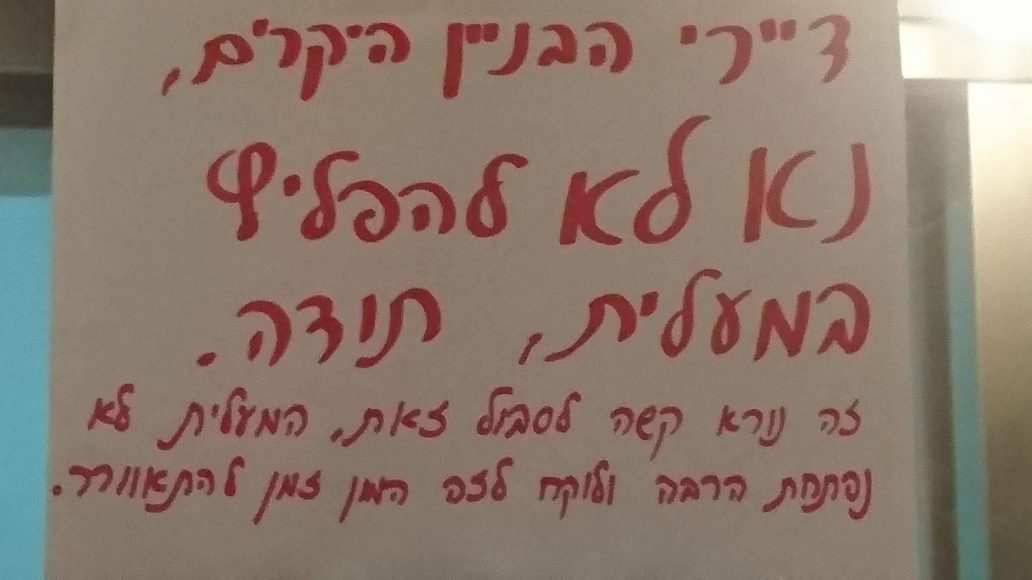 דיירי הבניין היקרים,
נא לא להפליץ
במעלית, תודה.
זה נורא קשה לסבול זאת, המעלית לא
נפתחת הרבה ולוקח לזה המון זמן להתאוורר.